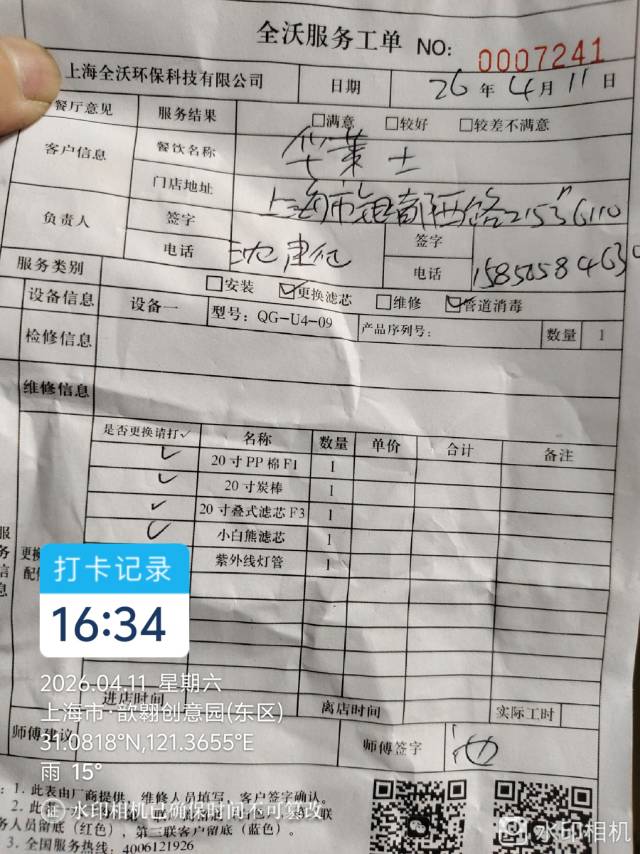 全沃服务工单 NO: 0007241
上海全沃环保科技有限公司 日期 26 年 4 月 11 日
餐厅意见 服务结果 □满意 □较好 □较差不满意
客户信息 餐饮名称 华莱士
门店地址 上海市
负责人 签字 签字
电话 电话
服务类别 □安装 ☑更换滤芯 □维修 ☑管道消毒
设备信息 设备一 型号: QG-U4-09 产品序列号: 数量 1
检修信息
维修信息
是否更换请打✓ 名称 数量 单价 合计 备注
✓ 20寸PP棉F1 1
✓ 20寸炭棒 1
✓ 20寸叠式滤芯F3 1
✓ 小白熊滤芯 1
紫外线灯管 1
服务信息 更换配件
打卡记录
16:34
2026.04.11 星期六
进店时间 离店时间 实际工时
上海市·歆翱创意园(东区)
31.0818°N,121.3655°E
师傅建议 师傅签字
雨 15°
1. 此表由厂商提供, 维修人员填写, 客户签字确认。
水印相机已确保时间不可篡改
务人员留底(红色), 第三联客户留底(蓝色)。
3. 全国服务热线: 4006121926
水印相机